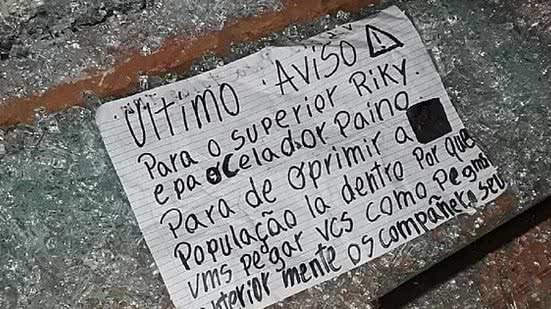 Último AViSO
Para o superior Riky.
e pa o Celador Paino.
Para de oprimir a
População la dentro Por que
vms pegar vcs como Pegmo
anterior mente os compañero seu